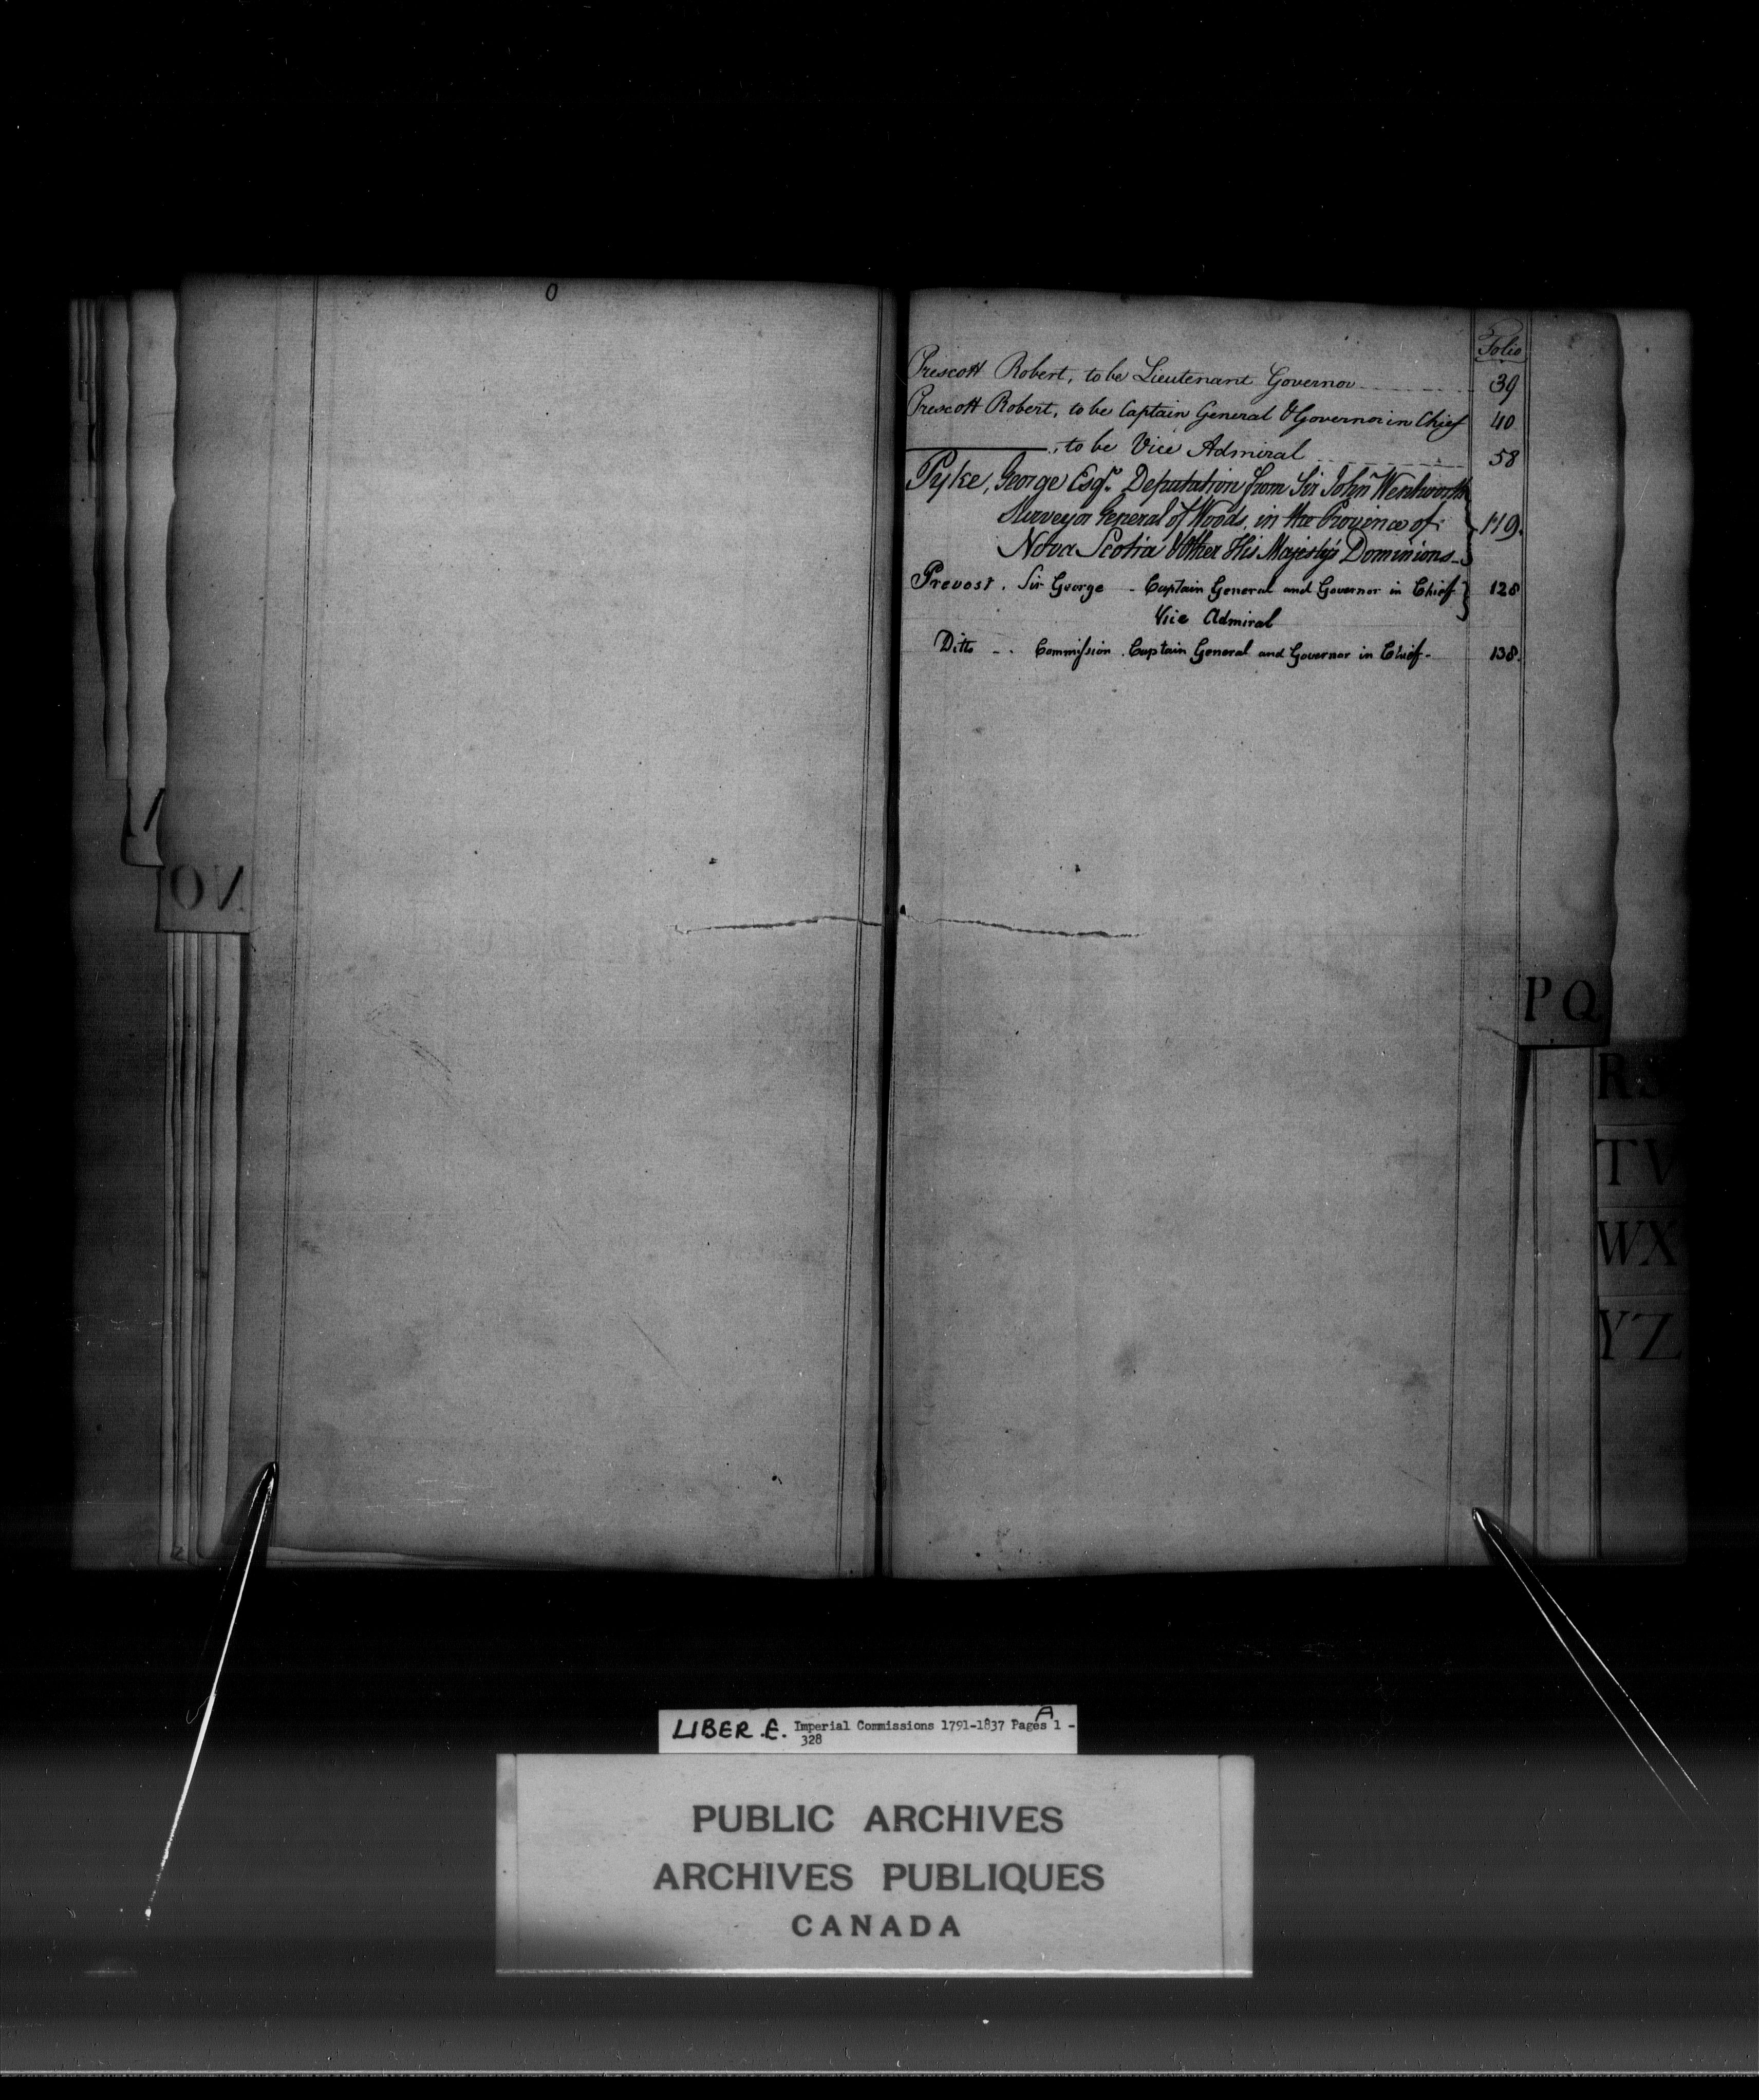 O
Folio
Prescott Robert, to be Lieutenant Governor 39
Prescott Robert, to be Captain General & Governor in Chief 40
, to be Vice Admiral 58
Pyke, George Esqr. Deputation from Sir John Wentworth
Surveyor General of Woods, in the Province of 119.
Nova Scotia & other His Majesty's Dominions
Prevost. Sir George - Captain General and Governor in Chief 128
Vice Admiral
Ditto - . Commission . Captain General and Governor in Chief - 138.
N
NO
PQ
RS
TV
WX
YZ
LIBER E. Imperial Commissions 1791-1837 Pages A 1 -
328
PUBLIC ARCHIVES
ARCHIVES PUBLIQUES
CANADA